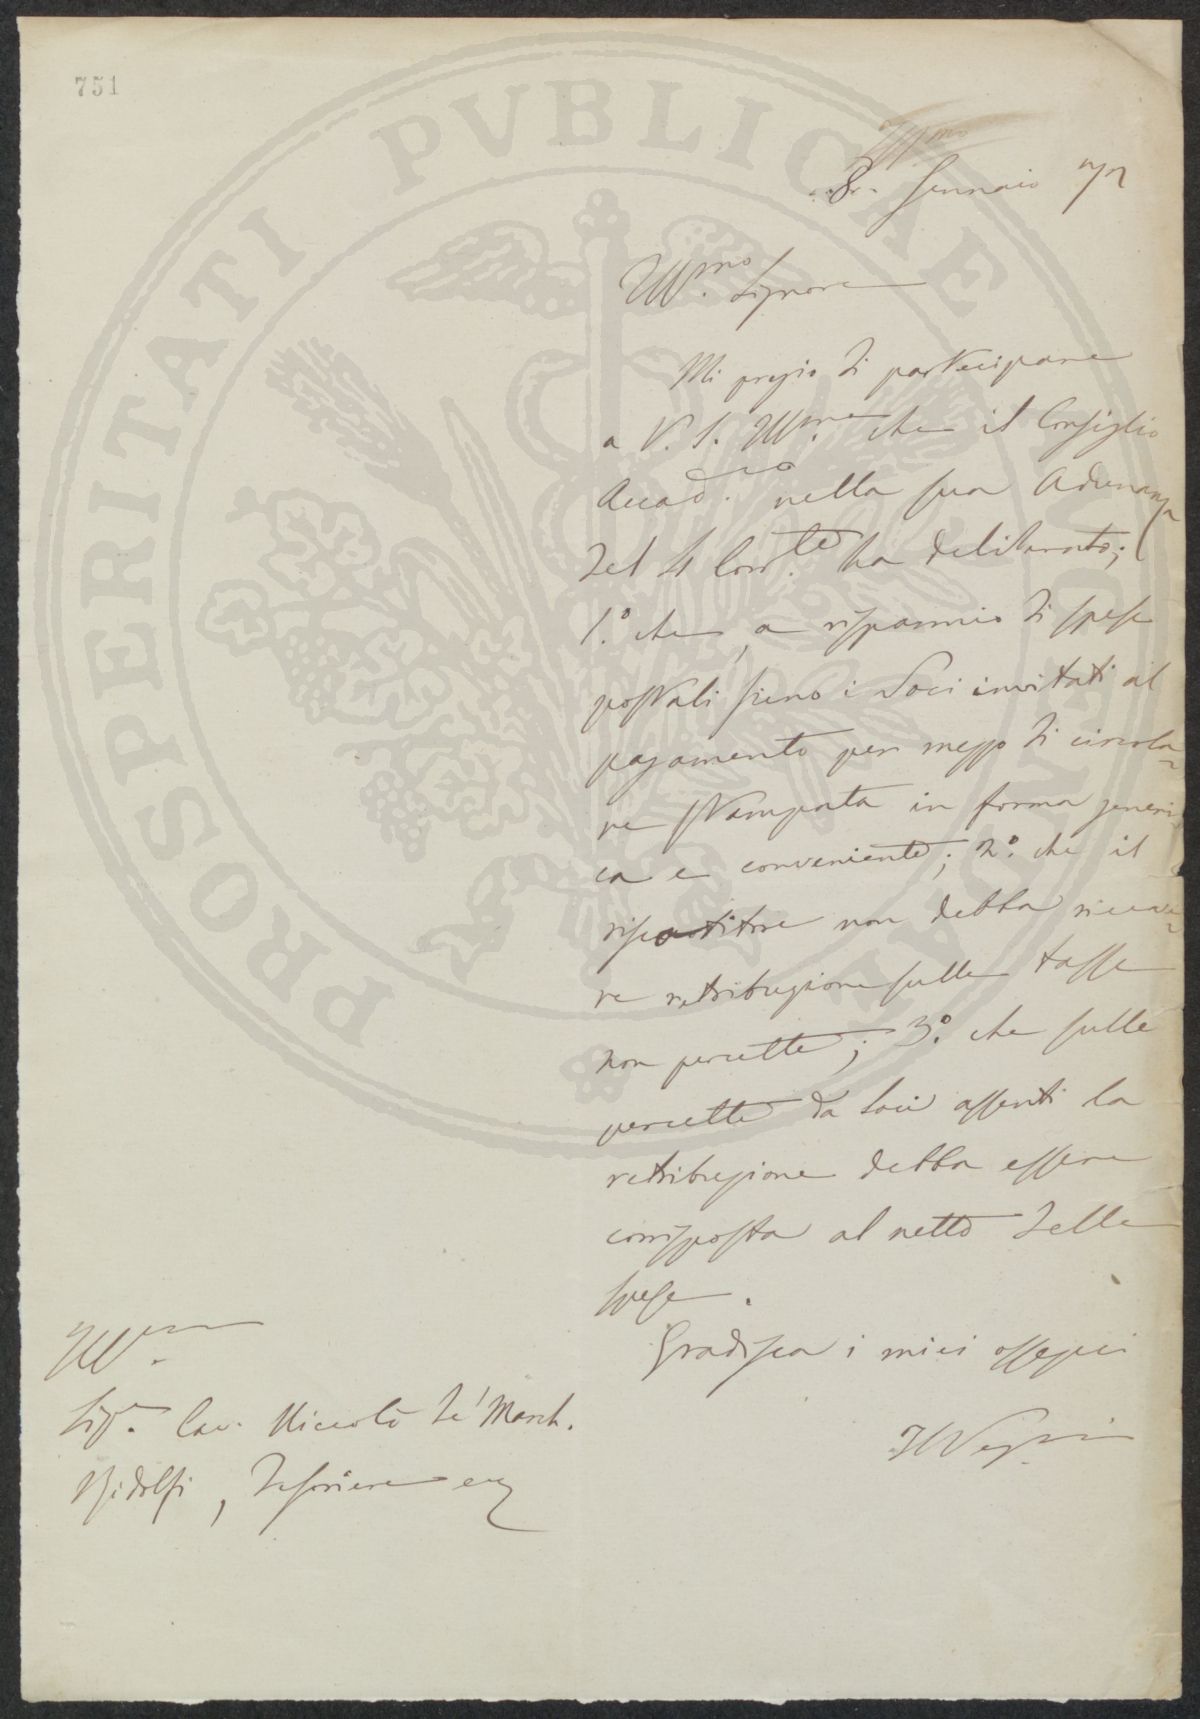 751
PROSPERITATI PVBLICAE AVGENDAE
Ill.mo
8. Gennaio
Ill.mo Signore
Mi pregio di partecipare
a V. S. Ill.ma che il Consiglio
Accad.co nella sua Adunanza
del 4 Corr.te ha deliberato;
1.o che, a risparmio di spese
postali sieno i Soci invitati al
pagamento per mezzo di circola-
re stampata in forma generi-
ca e conveniente; 2.o che il
riscotitore non debba riceve-
re retribuzione sulle tasse
non percette; 3.o che sulle
percette da Soci assenti la
retribuzione debba essere
corrisposta al netto delle
spese.
Gradisca i miei ossequi
Ill.mo
Sig.r Cav. Niccolò de' March.
Ridolfi, Tesoriere